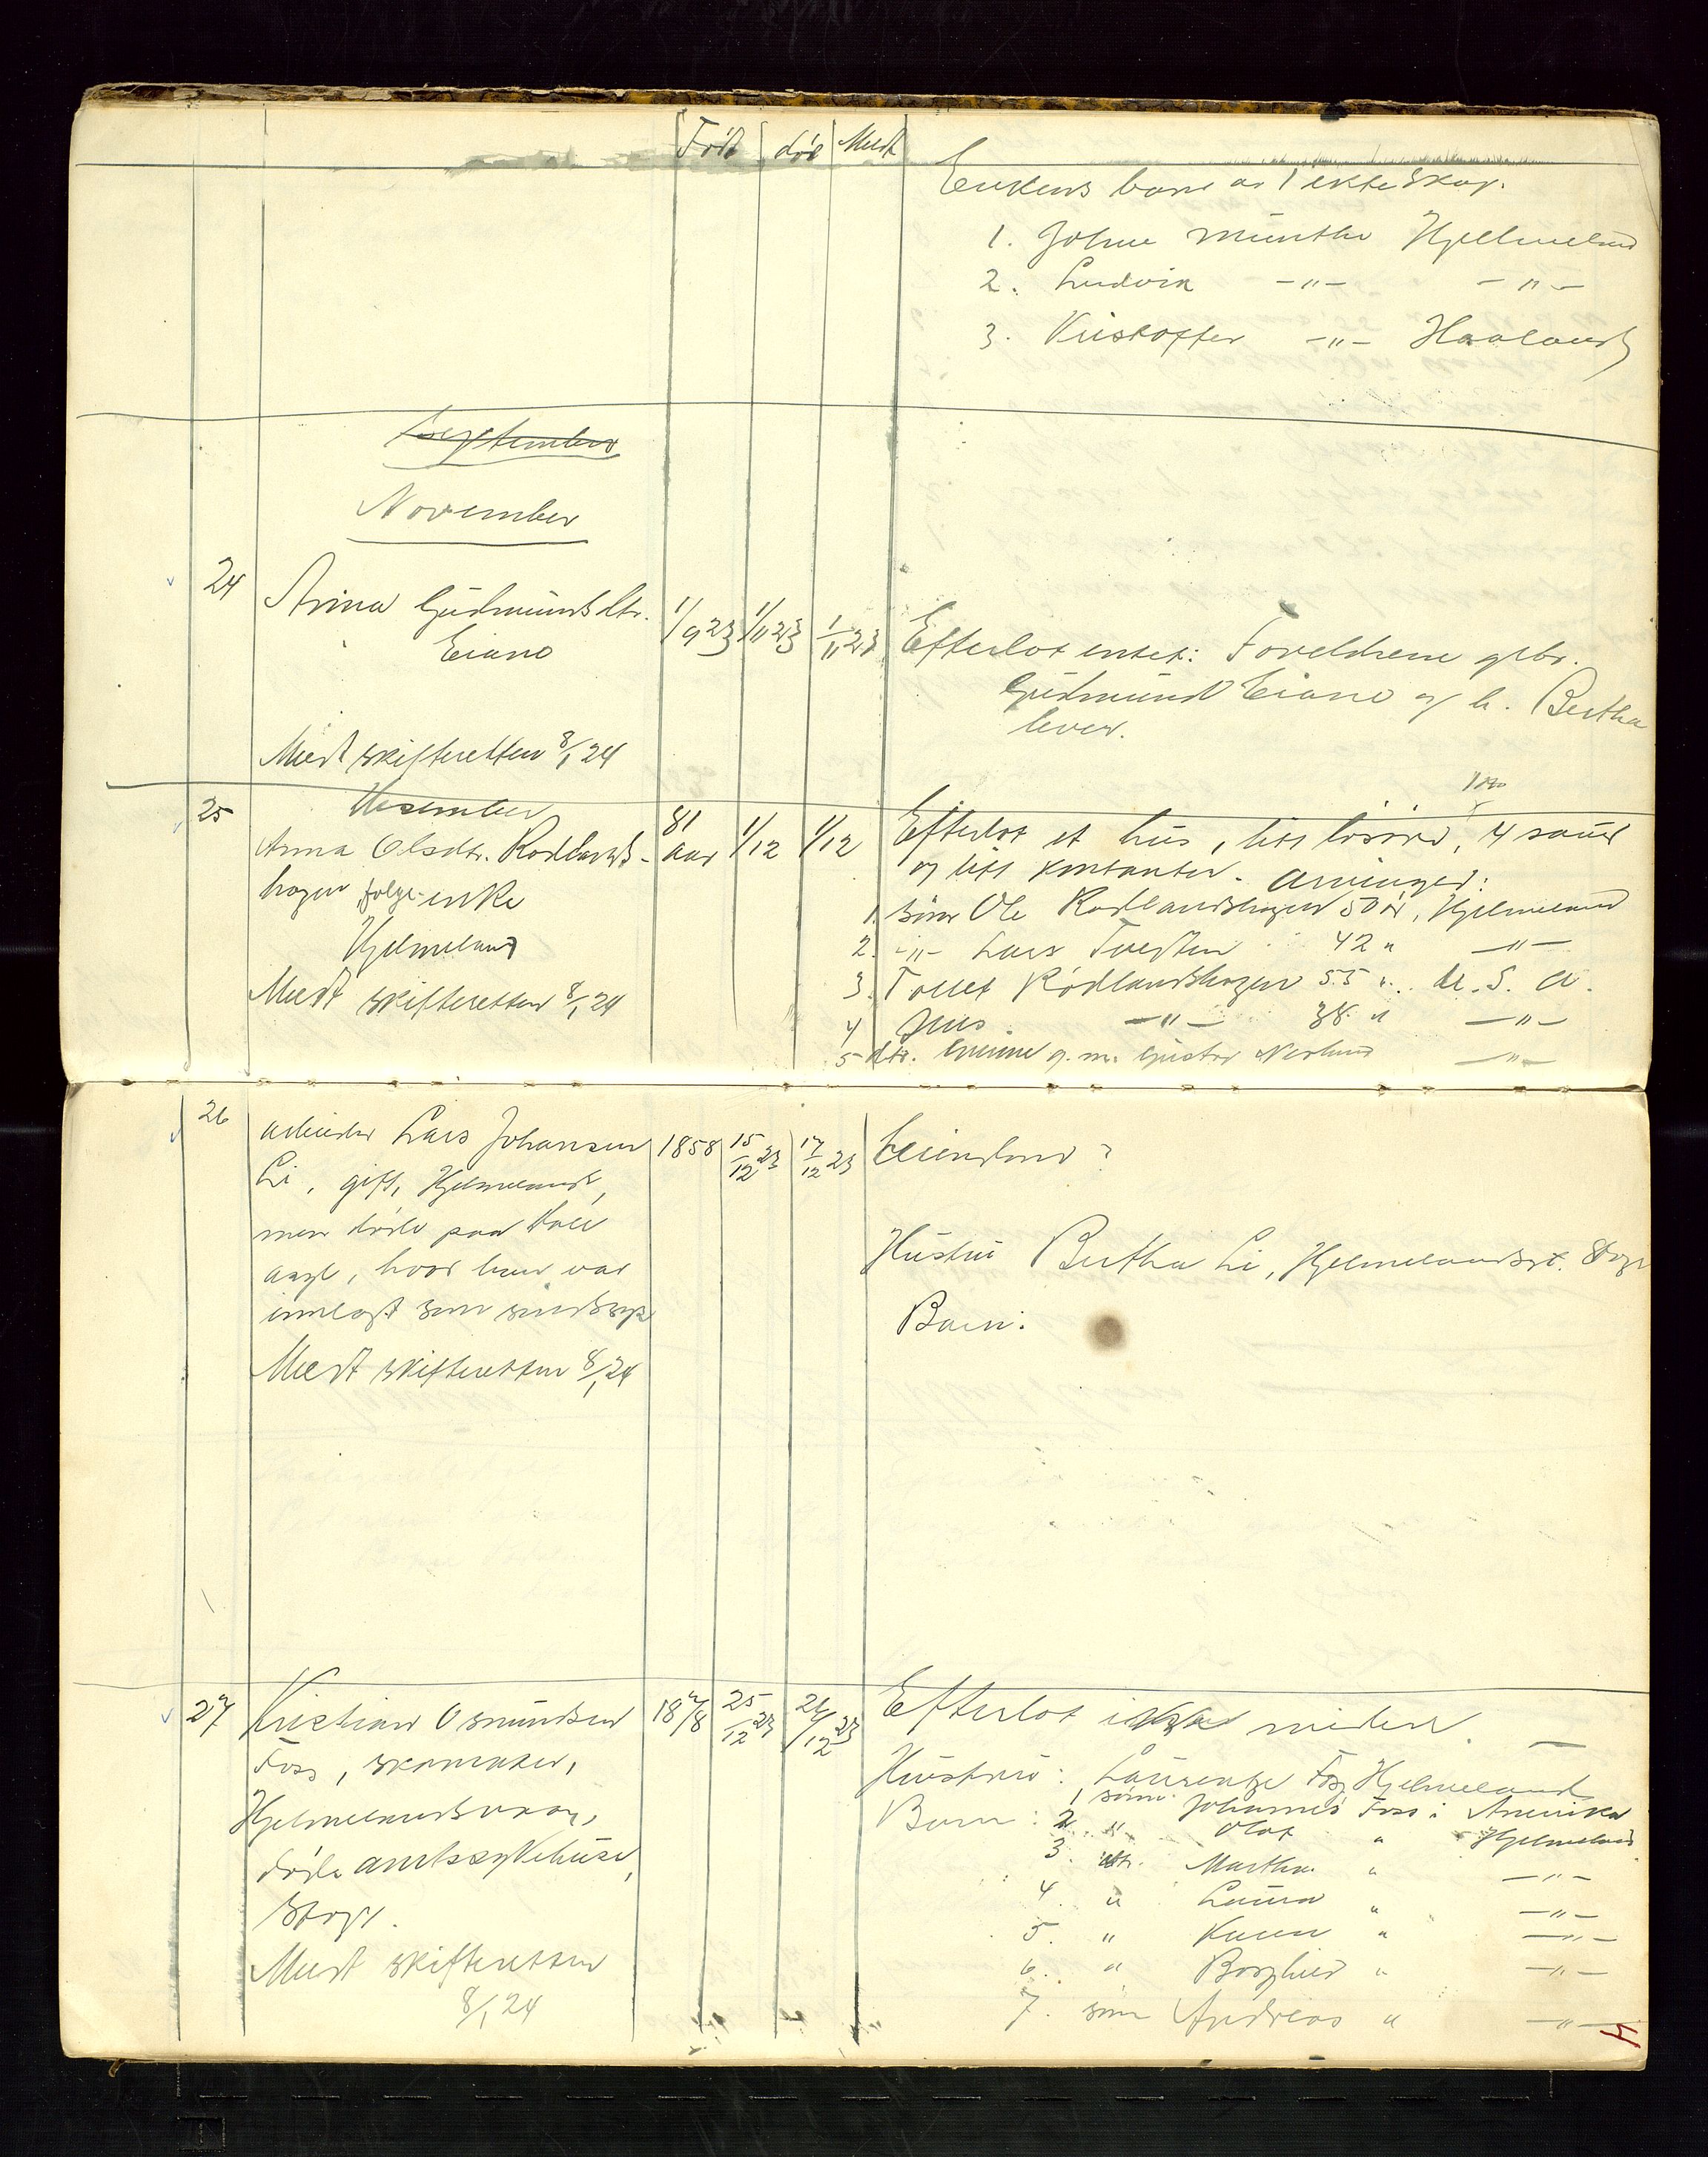 Født død Meldt
Enkens barn av 1 ekteskap.
1. Johne Munthe Hjelmeland
2. Ludvik -"- -"-
3. Kristoffer -"- Haaland
September
November
24 Anna Gudmundsdtr. 1/9 23 1/11 23 1/11 23 Efterlot intet: Foreldrene gbr.
Eiane
Gudmund Eiane og h. Bertha
lever.
Meldt skifteretten 8/1 24
25 Desember 81
Anna Olsdtr. Rødlands- aar 1/12 1/12 Efterlot et hus, litt løsøre, 4 sauer
hagen, folge-enke og litt kontanter. Arvinger:
1. søn Ole Rødlandshagen 50 år, Hjelmeland
Hjelmeland
2. -"- Lars Tveften 42 " -"-
Meldt skifteretten 8/1 24
3. Tollef Rødlandshagen 55 " U. S. A.
4 Jens -"- 38 " -"-
5 dtr. g. m. Gustav -"-
26 arbeider Lars Johansen 1858 15/12 23 17/12 23 Eiendom?
Li, gift, Hjelmeland,
men døde paa Dale
asyl, hvor han var
innlagt som sindssyk
Hustru Bertha Li, Hjelmelandsv. Stvgr
Barn:
Meldt skifteretten 8/1 24
27 Kristian Osmundsen 18 7/8 25/12 23 26/12 23 Efterlot ikke midler.
Foss, skomaker,
Hjelmelandsvaag,
døde amtssykehuset,
Stvgr.
Meldt skifteretten
8/1 24
Hustru: Laurentze Foss Hjelmeland
Barn: 1 søn Johannes Foss i Amerika
2 " Olaf " Hjelmeland
3. dtr. Martha " -"-
4. " Laura " -"-
5. " Karen " -"-
6. " Borghild " -"-
7. søn Andreas " -"-